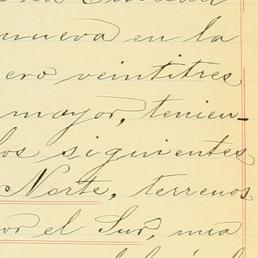 nueva en la
ero veintitres
mayor, tenien-
los siguientes
Norte, terrenos
por el Sur, una